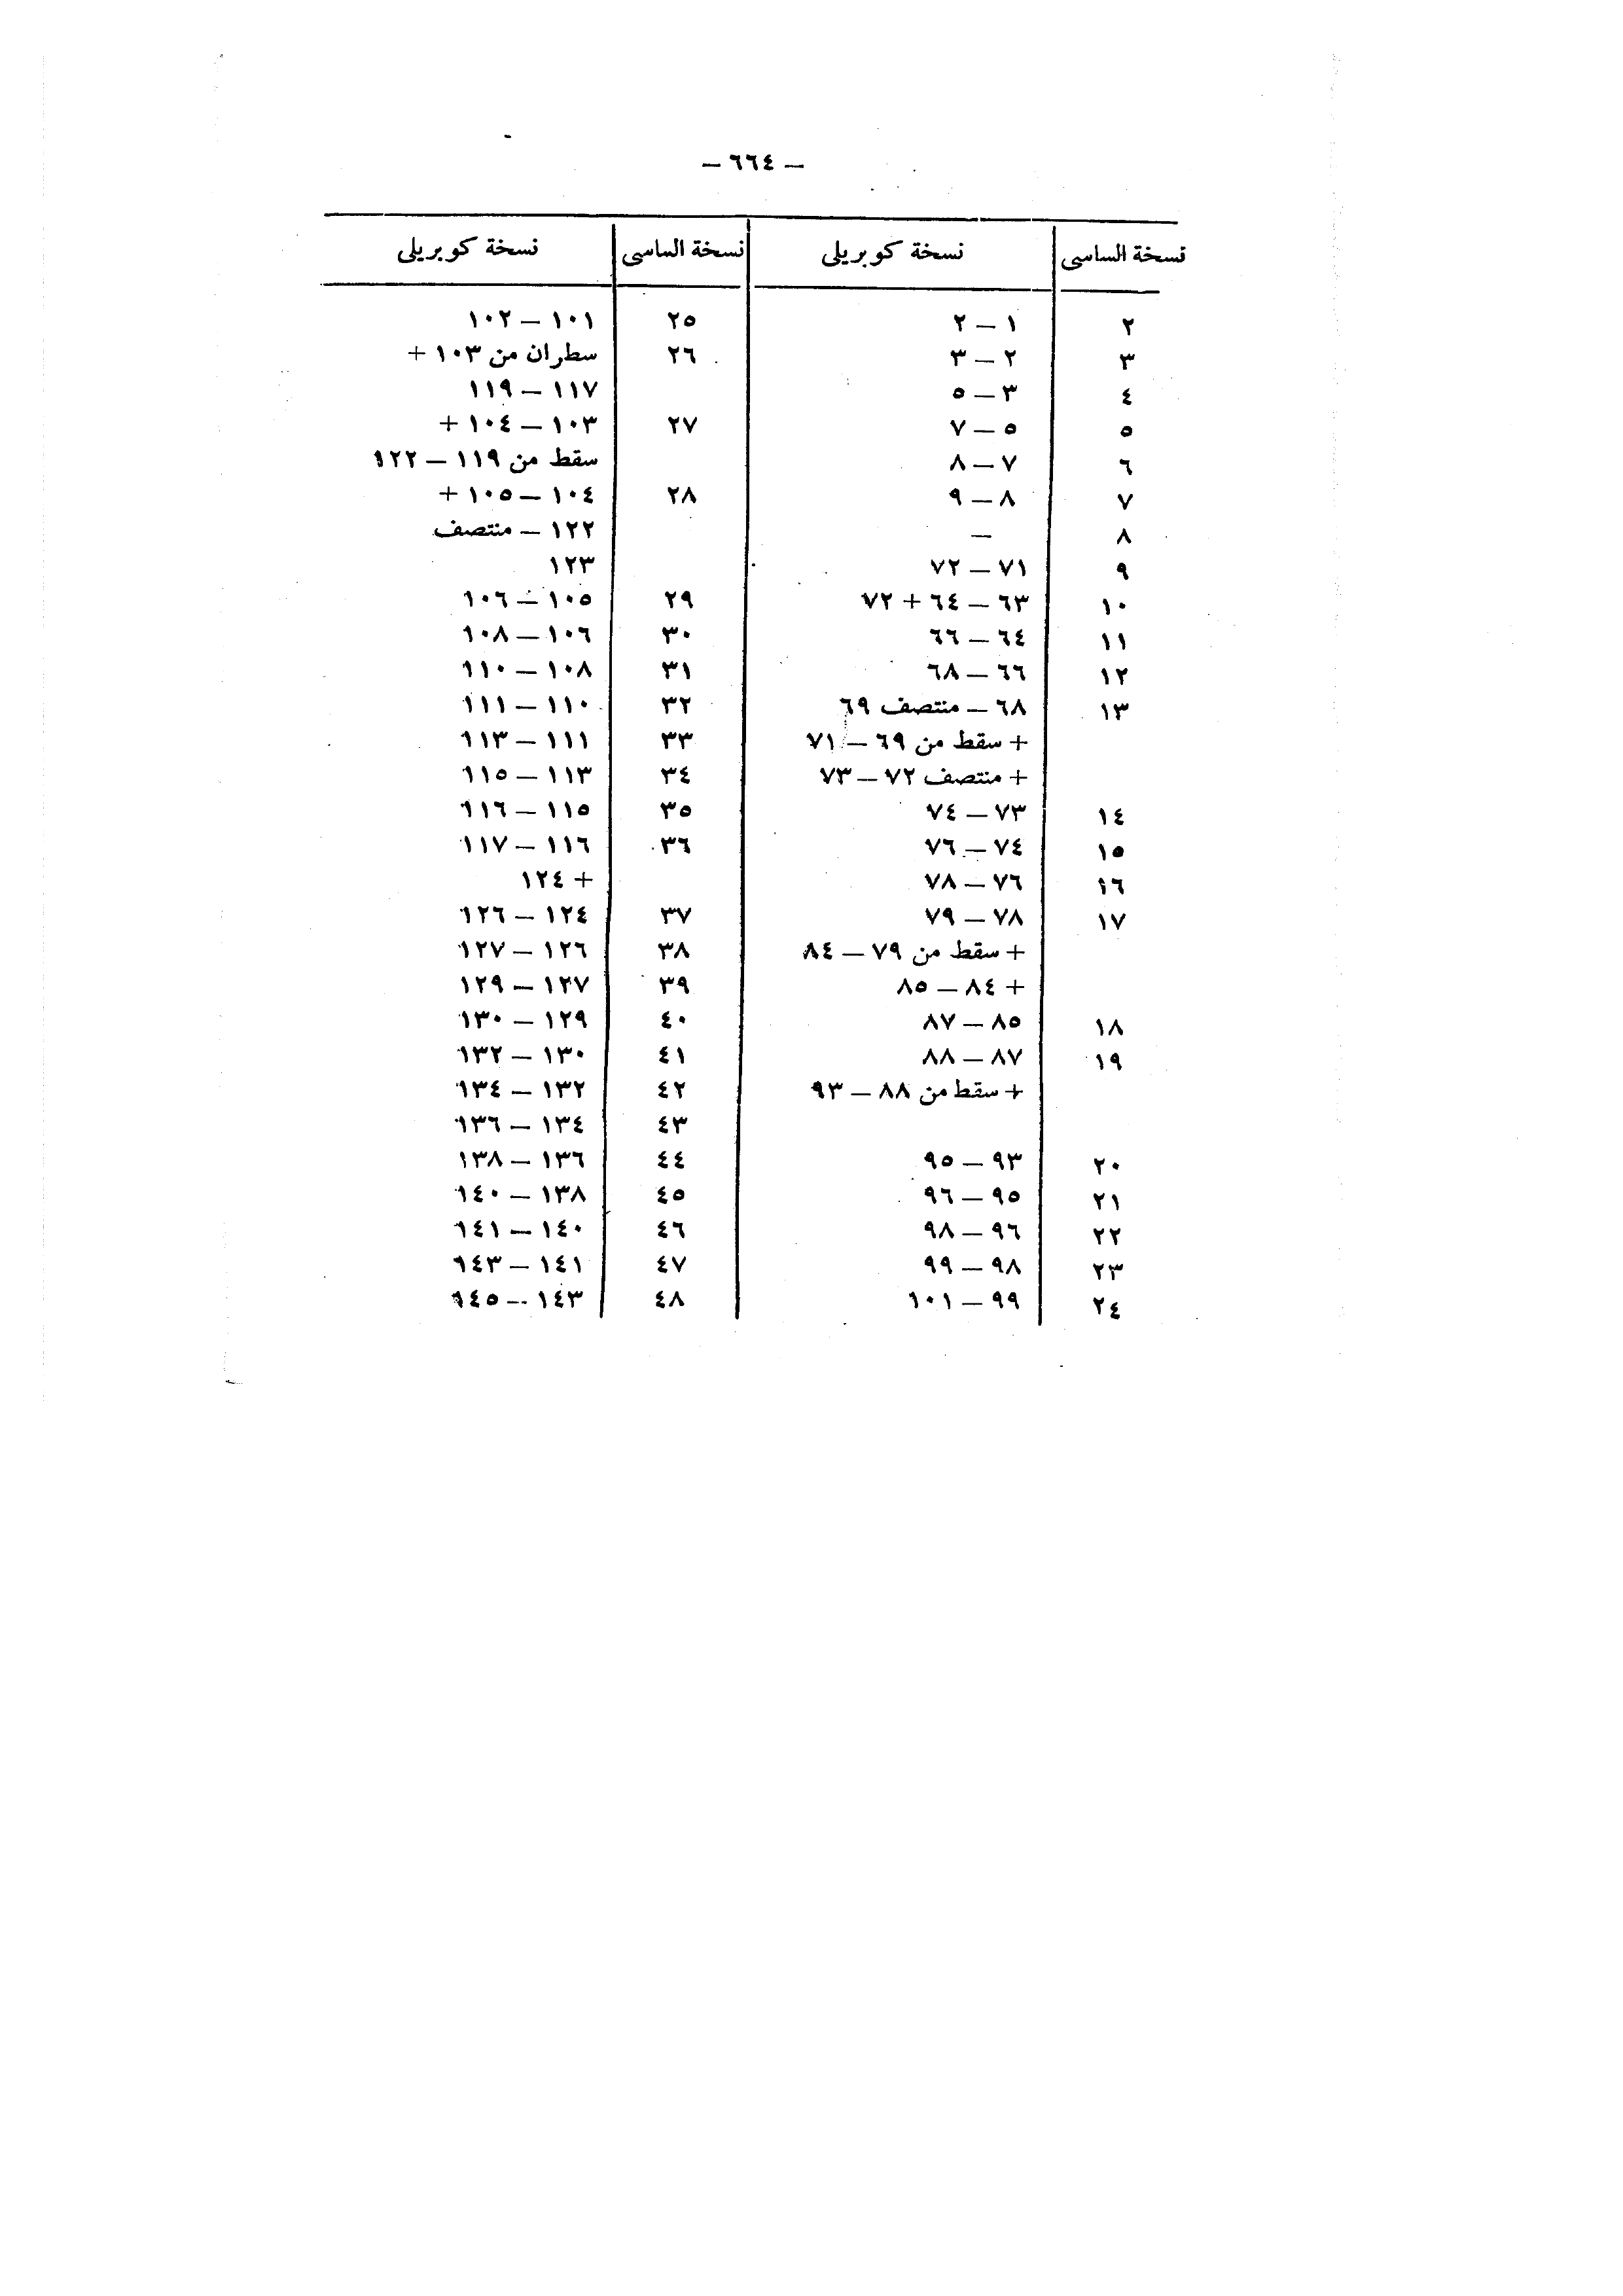 — ٦٦٤ —
نسخة الساسى نسخة كوبريلى نسخة الساسى نسخة كوبريلى
٢ ١ — ٢ ٢٥ ١٠١ — ١٠٢
٣ ٢ — ٣ ٢٦ سطران من ١٠٣ +
٤ ٣ — ٥ ١١٧ — ١١٩
٥ ٥ — ٧ ٢٧ ١٠٣ — ١٠٤ +
٦ ٧ — ٨ سقط من ١١٩ — ١٢٢
٧ ٨ — ٩ ٢٨ ١٠٤ — ١٠٥ +
٨ — ١٢٢ — منتصف
٩ ٧١ — ٧٢ ١٢٣
١٠ ٦٣ — ٦٤ + ٧٢ ٢٩ ١٠٥ — ١٠٦
١١ ٦٤ — ٦٦ ٣٠ ١٠٦ — ١٠٨
١٢ ٦٦ — ٦٨ ٣١ ١٠٨ — ١١٠
١٣ ٦٨ — منتصف ٦٩ ٣٢ ١١٠ — ١١١
+ سقط من ٦٩ — ٧١ ٣٣ ١١١ — ١١٣
+ منتصف ٧٢ — ٧٣ ٣٤ ١١٣ — ١١٥
١٤ ٧٣ — ٧٤ ٣٥ ١١٥ — ١١٦
١٥ ٧٤ — ٧٦ ٣٦ ١١٦ — ١١٧
١٦ ٧٦ — ٧٨ + ١٢٤
١٧ ٧٨ — ٧٩ ٣٧ ١٢٤ — ١٢٦
+ سقط من ٧٩ — ٨٤ ٣٨ ١٢٦ — ١٢٧
+ ٨٤ — ٨٥ ٣٩ ١٢٧ — ١٢٩
١٨ ٨٥ — ٨٧ ٤٠ ١٢٩ — ١٣٠
١٩ ٨٧ — ٨٨ ٤١ ١٣٠ — ١٣٢
+ سقط من ٨٨ — ٩٣ ٤٢ ١٣٢ — ١٣٤
٤٣ ١٣٤ — ١٣٦
٢٠ ٩٣ — ٩٥ ٤٤ ١٣٦ — ١٣٨
٢١ ٩٥ — ٩٦ ٤٥ ١٣٨ — ١٤٠
٢٢ ٩٦ — ٩٨ ٤٦ ١٤٠ — ١٤١
٢٣ ٩٨ — ٩٩ ٤٧ ١٤١ — ١٤٣
٢٤ ٩٩ — ١٠١ ٤٨ ١٤٣ — ١٤٥